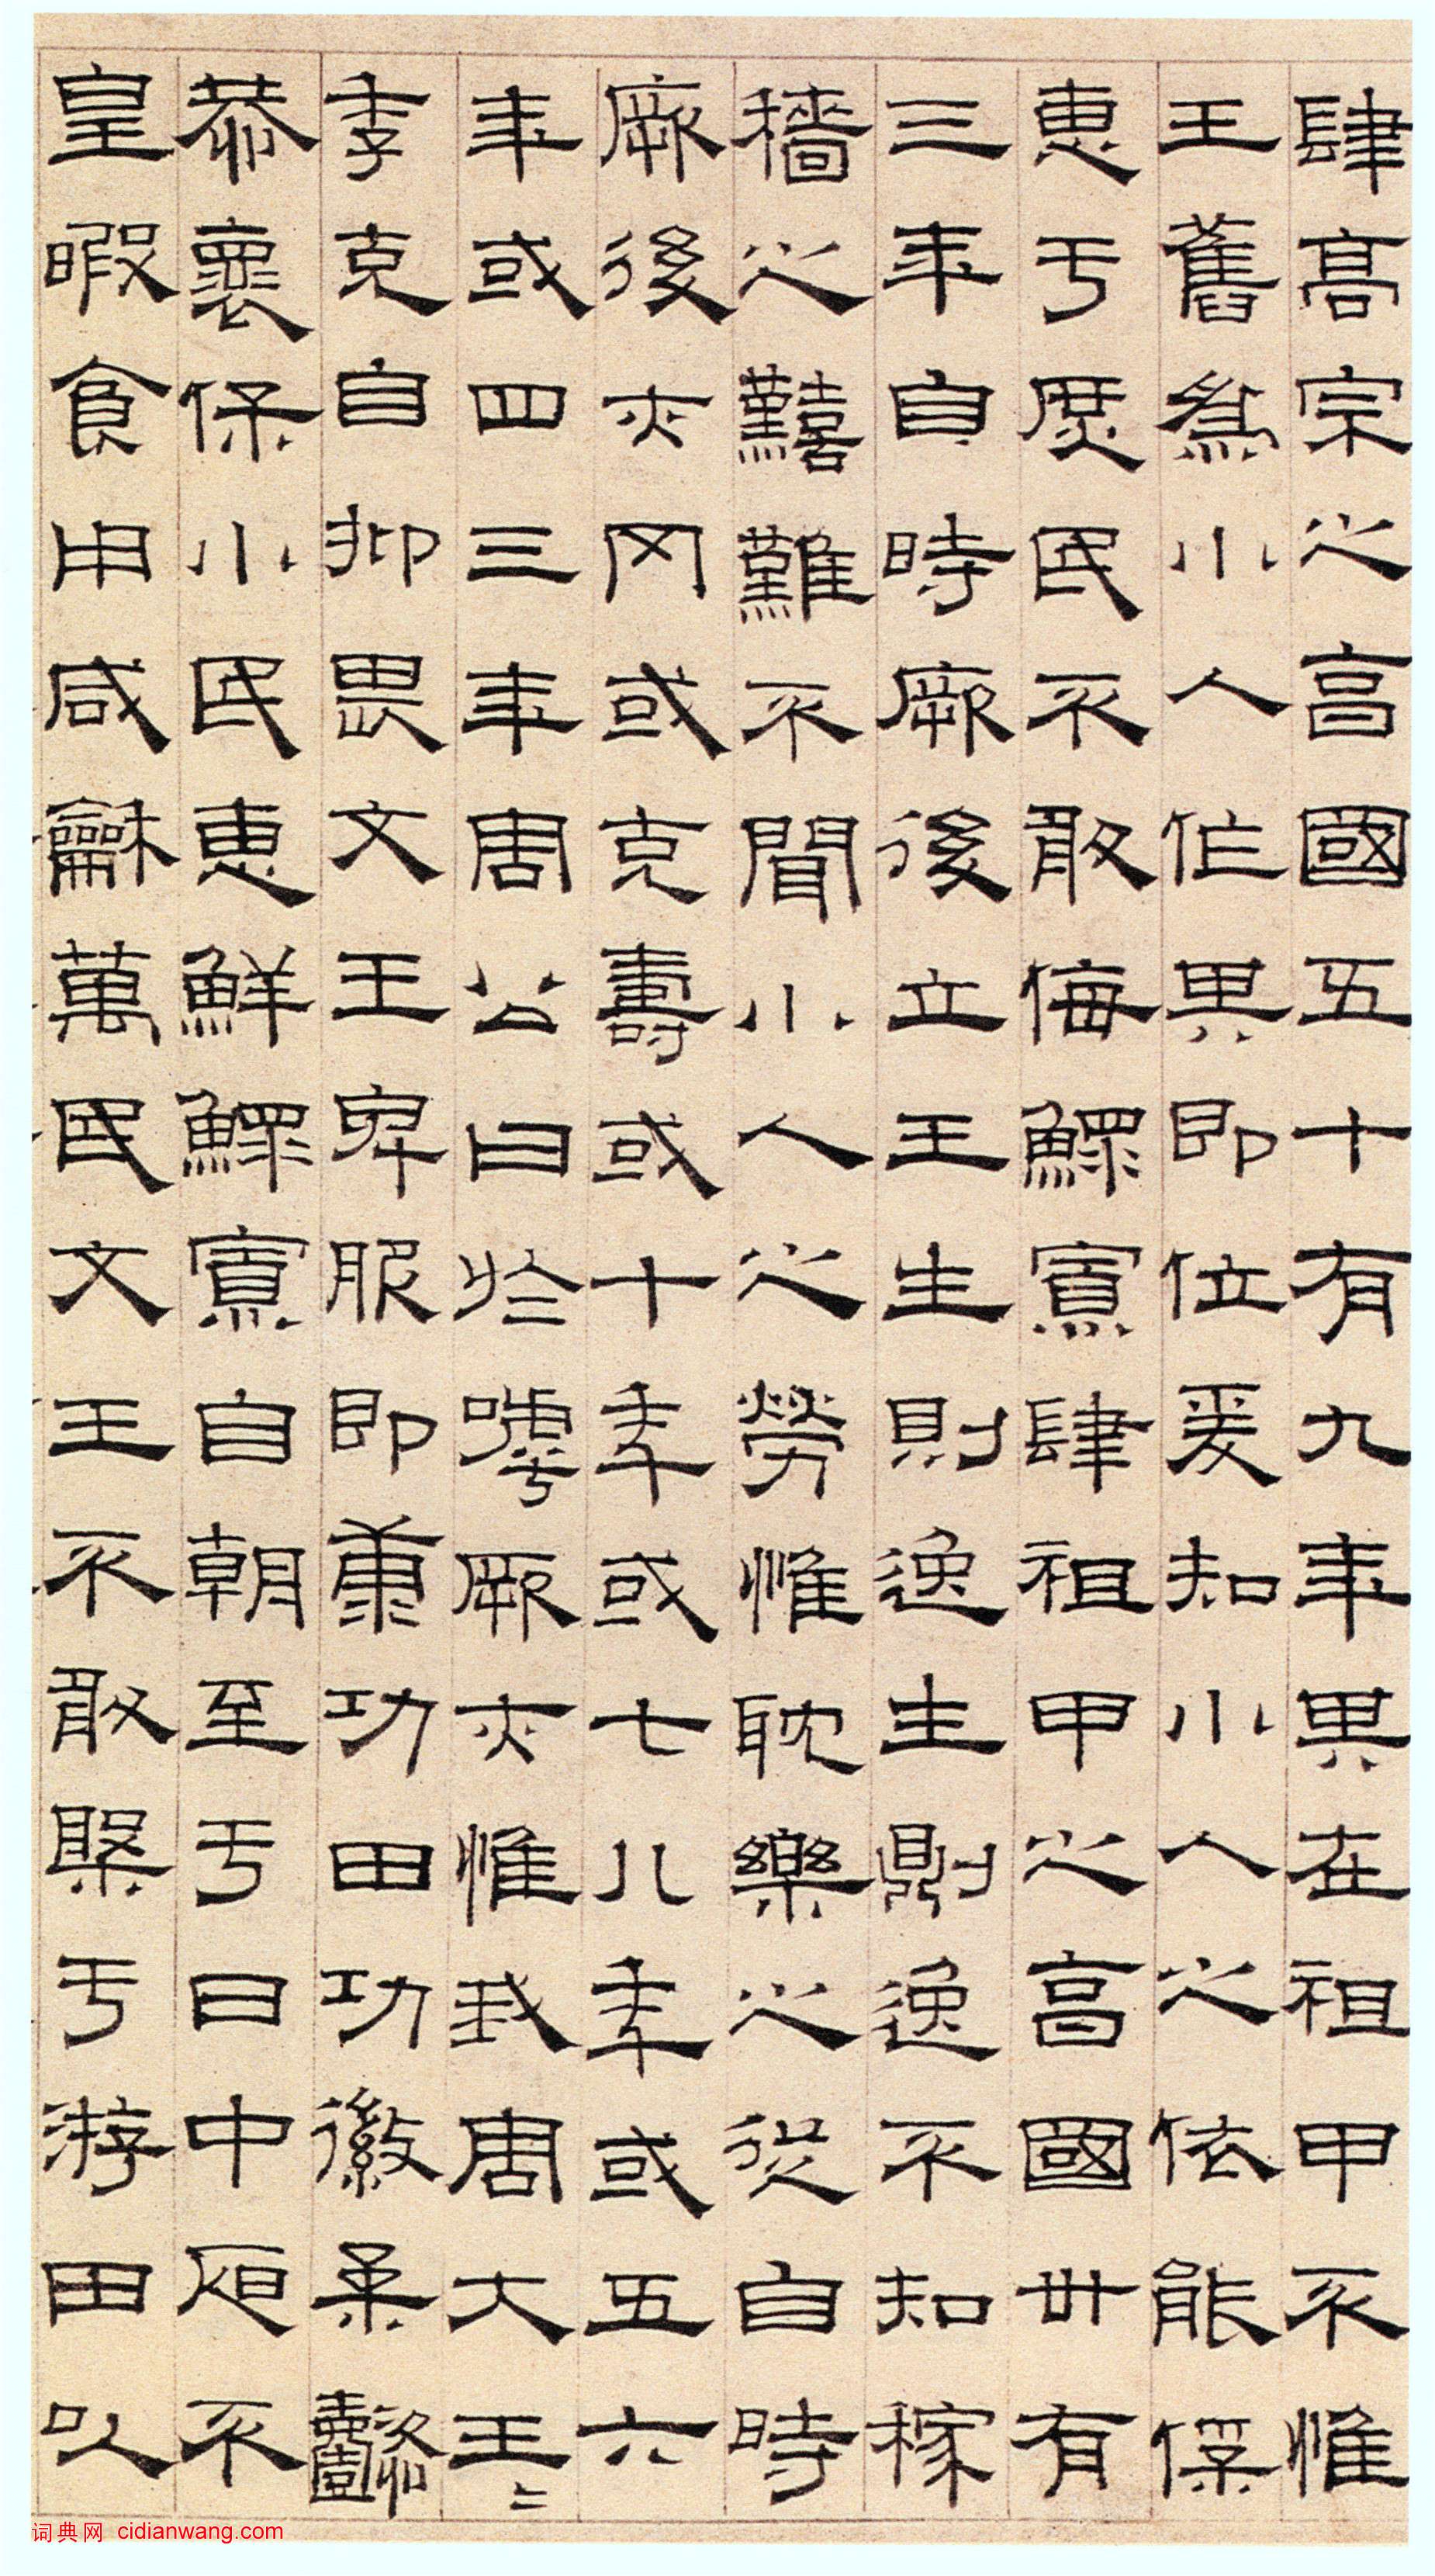 肆高宗之亯國五十有九年其在祖甲不惟
王舊為小人作其即位爰知小人之依能保
惠于庶民不敢侮鰥寡肆祖甲之亯國卅有
三年自時厥後立王生則逸生則逸不知稼
穡之囏難不聞小人之勞惟耽樂之從自時
厥後亦罔或克壽或十年或七八年或五六
年或四三年周公曰於嘑厥亦惟我周大王二
季克自抑畏文王卑服即康功田功徽柔懿
恭懷保小民惠鮮鰥寡自朝至于日中昃不
皇暇食用咸龢萬民文王不敢槃于游田以
词典网 cidianwang.com